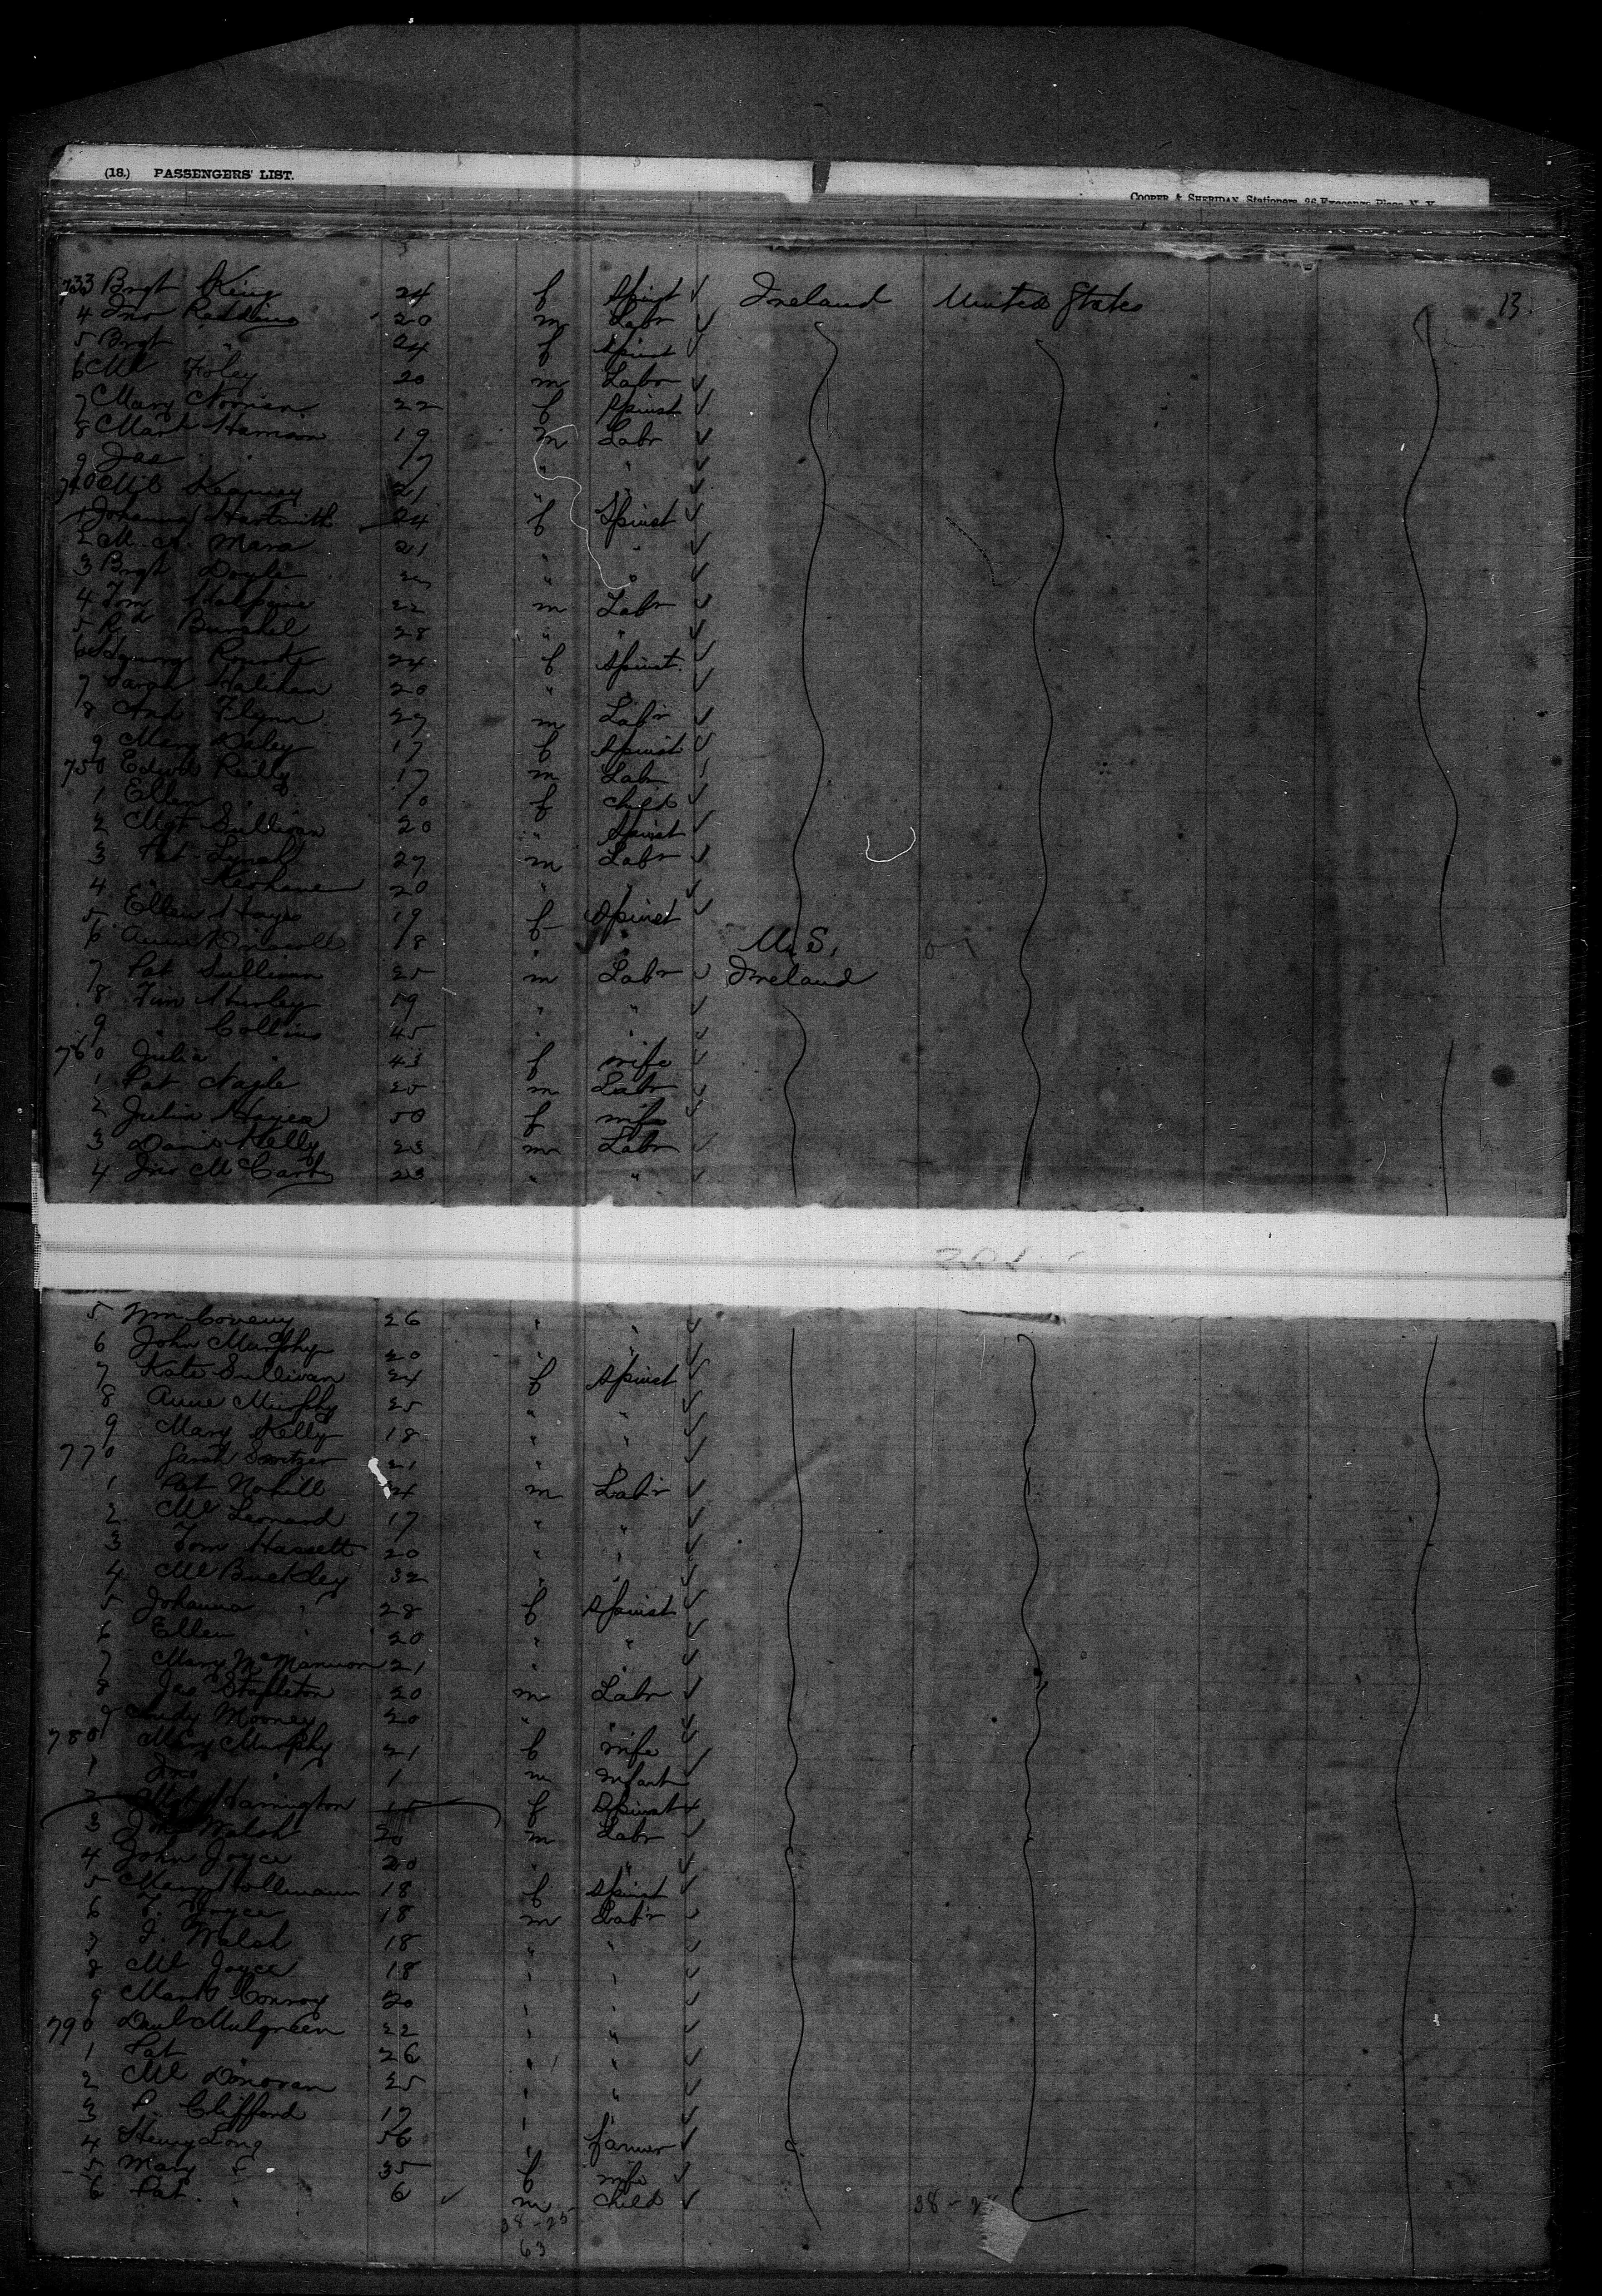 (18.) PASSENGERS' LIST.
COOPER & SHERIDAN, Stationers, 86 Exchange Place, N. Y.
733 Brgt King 24 f Spinst ✓ Ireland United States 13.
4 Jno Redding 20 m Labr ✓
5 Brgt " 24 f Spinst ✓
6 Ml Foley 20 m Labr ✓
7 Mary 22 f Spinst ✓
8 Mark Harrison 19 m Labr ✓
9 Jas " 17 " " ✓
740 21 " " ✓
1 Johanna 24 f Spinst ✓
2 Mara 21 " " ✓
3 Brgt Doyle " " ✓
4 Tom Halpine 22 m Labr ✓
5 28 " " ✓
6 24 f Spinst. ✓
7 Sarah Halihan 20 " " ✓
8 And Flynn 27 m Labr ✓
9 Mary Daley 17 f Spinst ✓
750 Edwd Reilly 17 m Labr ✓
1 Ellen " 10 f child ✓
2 Mgt Sullivan 20 " Spinst ✓
3 Pat Lynch 27 m Labr ✓
4 " Keohane 20 " " ✓
5 Ellen Hayes 19 f Spinst ✓
6 Anne Driscoll 18 " " U. S.
7 Pat Sullivan 25 m Labr ✓ Ireland
8 Tim Hurley 19 " " ✓
9 " Collins 45 " " ✓
760 Julia " 43 f wife ✓
1 Pat Nagle 25 m Labr ✓
2 Julia Hayes 50 f wife ✓
3 Danl Kelly 23 m Labr ✓
4 Jno McCarty 23 " " ✓
5 Wm Coveny 26 " " ✓
6 John Murphy 20 " " ✓
7 Kate Sullivan 24 f Spinst ✓
8 Anne Murphy 25 " " ✓
9 Mary Kelly 18 " " ✓
770 Sarah Switzer 21 " " ✓
1 Pat Nohill 24 m Labr ✓
2 Ml Leonard 17 " " ✓
3 Tom Hassett 20 " " ✓
4 Ml Buckley 32 " " ✓
5 Johanna " 28 f Spinst ✓
6 Ellen " 20 " " ✓
7 Mary McMannon 21 " " ✓
8 Jas Stapleton 20 m Labr ✓
9 Andy Mooney 20 " " ✓
780 Mary Murphy 21 f wife ✓
1 Jno " 1 m Infant ✓
2 Mgt Harrington 15 f Spinst ✗
3 John Walsh 20 m Labr ✓
4 John Joyce 20 " " ✓
5 Mary Hollmann 18 f Spinst ✓
6 T. Joyce 18 m Labr ✓
7 J. Walsh 18 " " ✓
8 Ml Joyce 18 " " ✓
9 Mark Conroy 20 " " ✓
790 Danl Mulgreen 22 " " ✓
1 Pat " 26 " " ✓
2 Ml Donovan 25 " " ✓
3 P. Clifford 17 " " ✓
4 Henry Long 56 " farmer ✓
5 Mary " 35 f wife ✓
6 Pat. " 6 ✓ m child ✓
38-25
63
38-